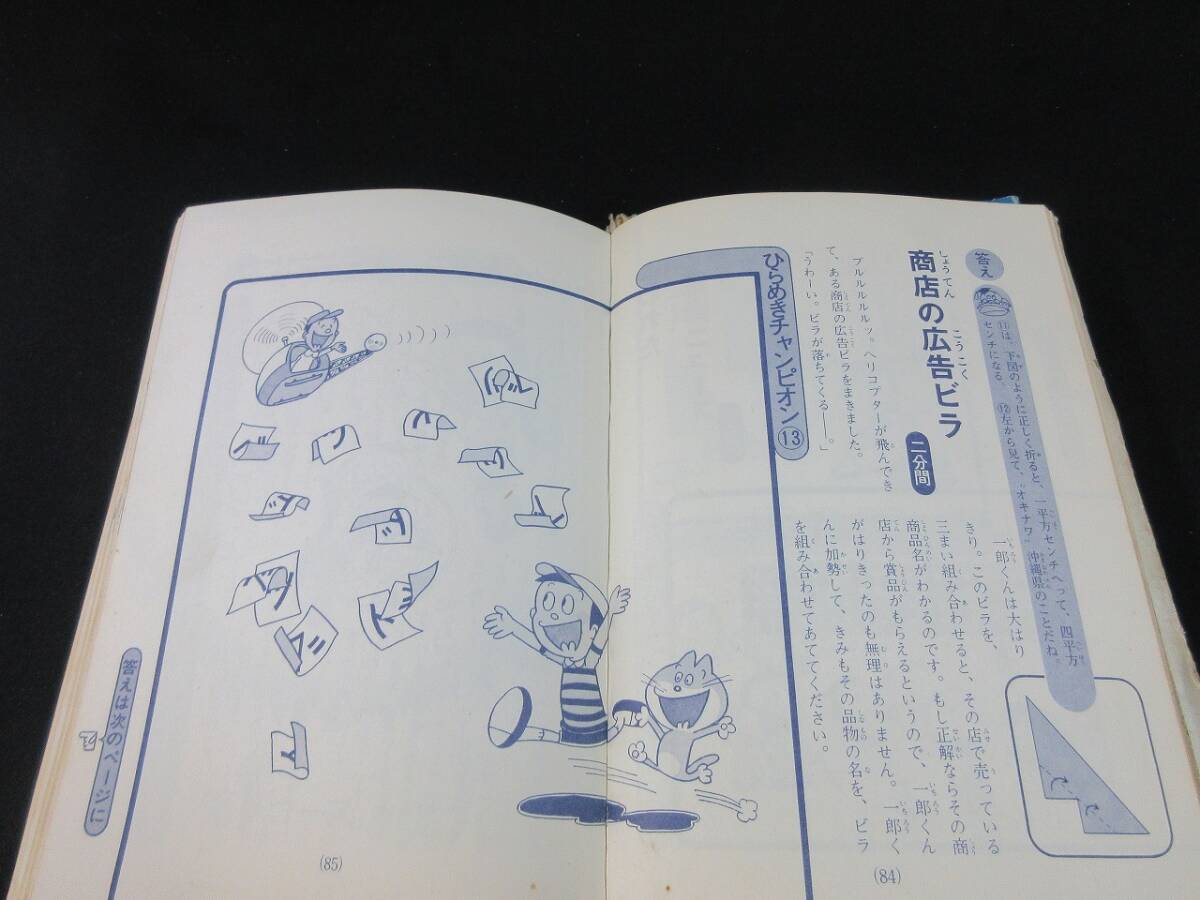 答え
⑪は、下図のように正しく折ると、一平方センチへって、四平方
センチになる。 ⑫左から見て、"オキナワ" 沖縄県のことだね。
商店の広告ビラ
しょうてん
こうこく
二分間
ブルルルルルッ。ヘリコプターが飛んでき
て、ある商店の広告ビラをまきました。
「うわーい。ビラが落ちてくる――。」
ひらめきチャンピオン⑬
一郎くんは大はり
きり。このビラを、
三まい組み合わせると、その店で売っている
商品名がわかるのです。もし正解ならその商
店から賞品がもらえるというので、一郎くん
がはりきったのも無理はありません。一郎く
んに加勢して、きみもその品物の名を、ビラ
を組み合わせてあててください。
(84)
答えは次のページに
(85)